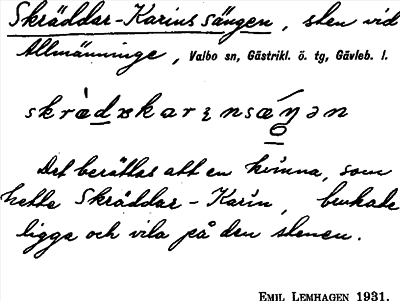 Skräddar-Karins sängen, sten vid
Allmänninge, Valbo sn, Gästrikl. ö. tg, Gävleb. l.
Det berättas att en kvinna, som
hette Skräddar-Karin, brukade
ligga och vila på den stenen.
EMIL LEMHAGEN 1931.